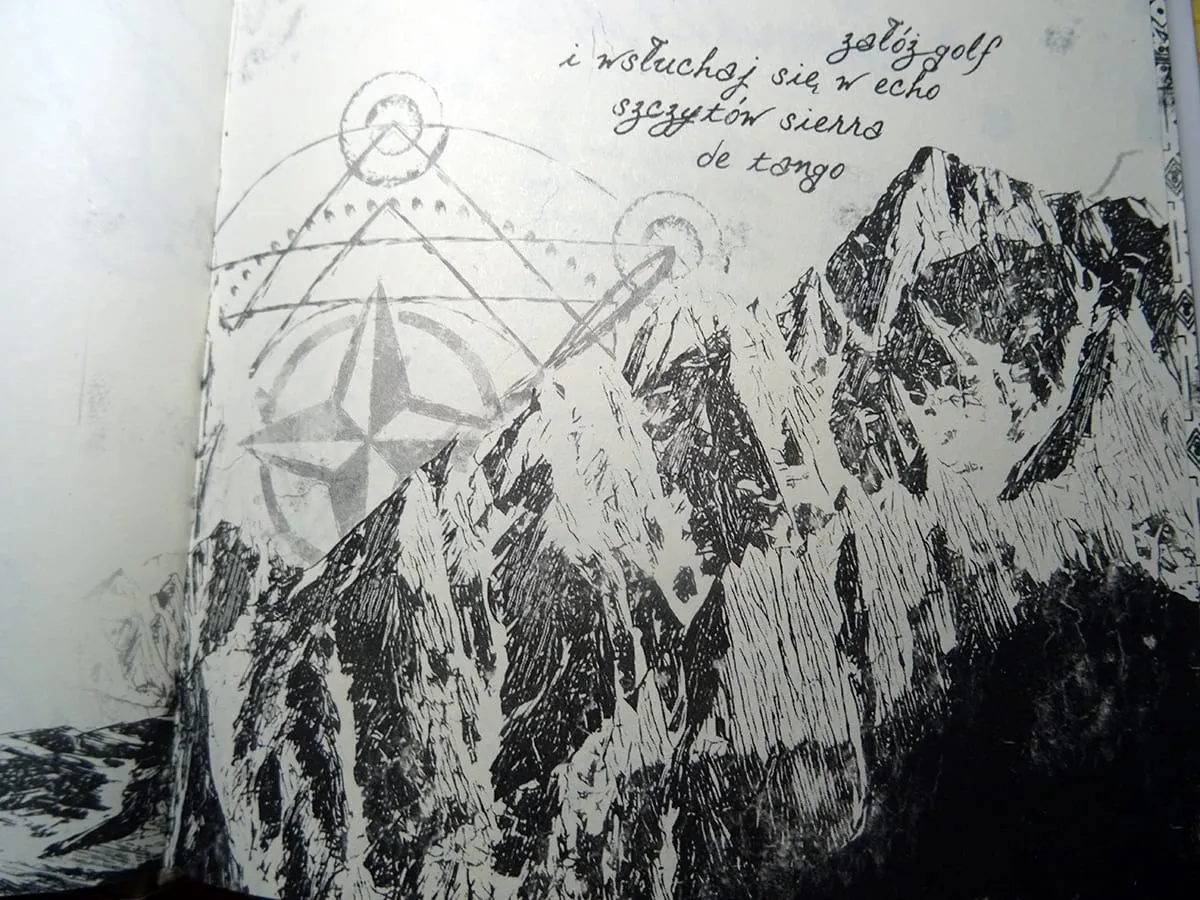 załóż golf
i wsłuchaj się w echo
szczytów sierra
de tango